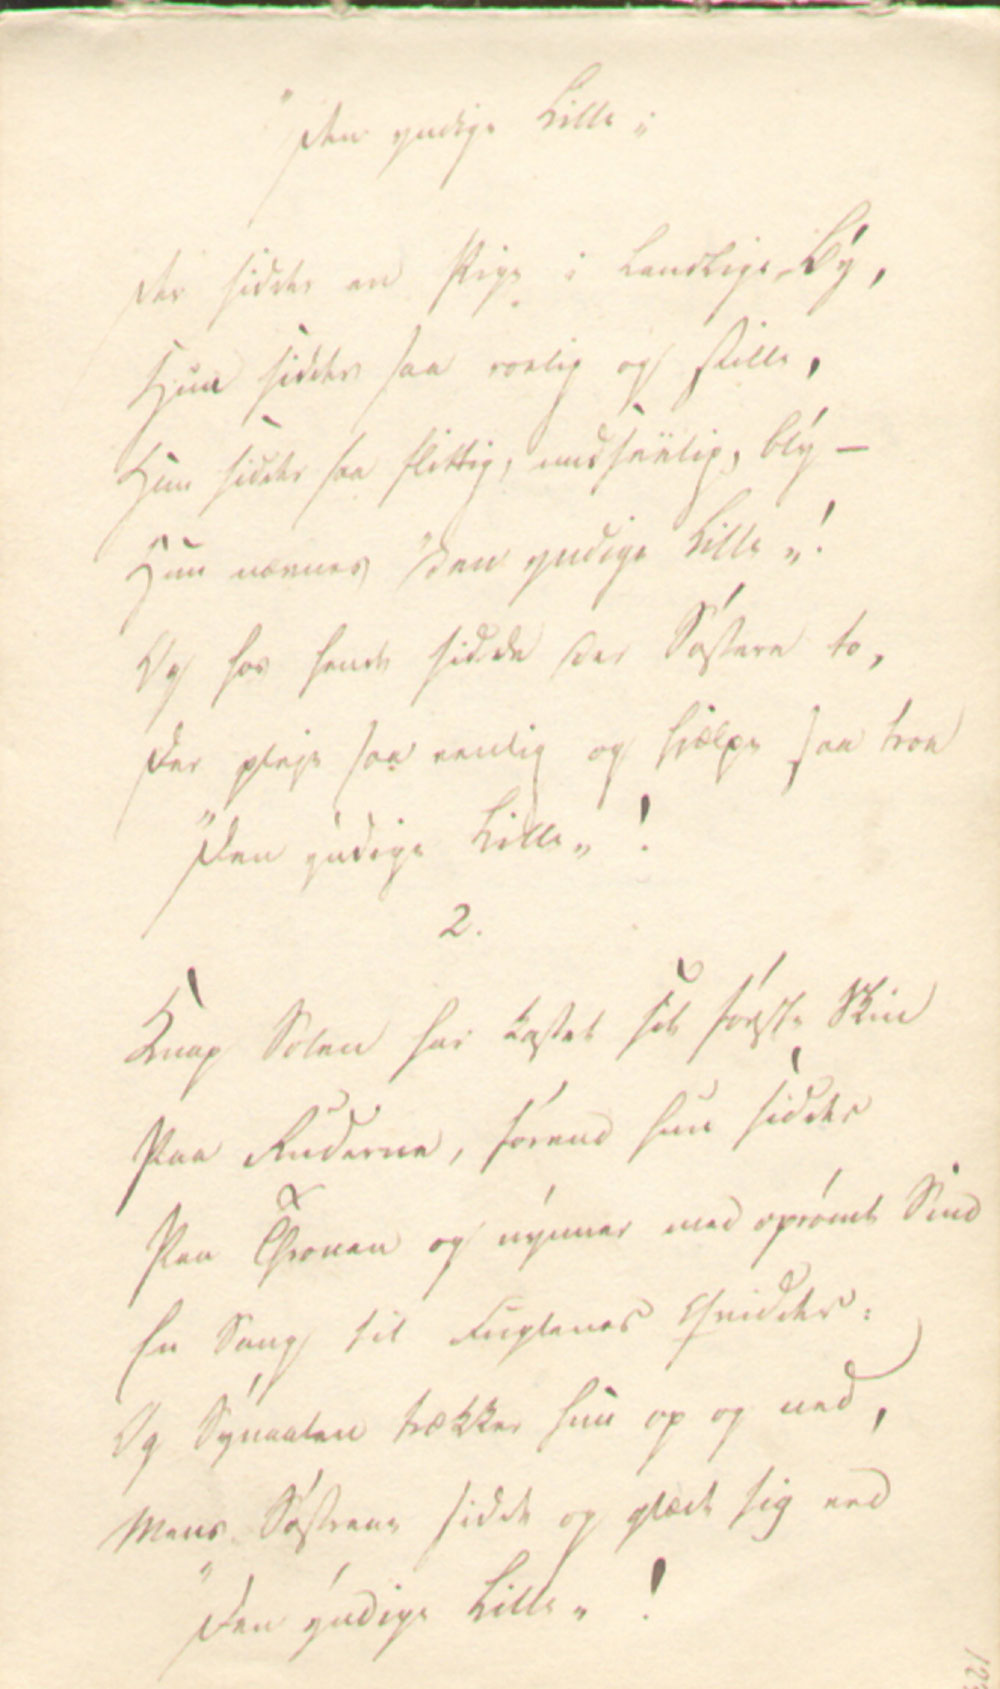 "Den yndige Lille"
Der sidder en Pige i landlige By,
Hun sidder saa rolig og stille,
Hun sidder saa flittig, undseelig, bly —
Hun nævnes "Den yndige Lille"!
Og hos hende sidde der Søstere to,
Der pleje saa venlig og hjælpe saa troe
"Den yndige Lille"!
2.
Knap Solen har kastet sit første Skin
Paa Ruderne, førend hun sidder
Paa Thronen og nynner med oprømt Sind
En Sang til Fuglenes Qvidder:
Og Synaalen trækker hun op og ned,
Mens Søstrene sidde og glæde sig ved
"Den yndige Lille"!